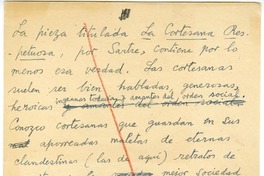 La pieza titulada La Cortesana Res-
petuosa, por Sartre, contiene por lo
menos esa verdad. Las cortesanas
suelen ser bien habladas, generosas,
ingenuas todavía y amantes del orden social.
heroicas y amantes del orden social
Conozco cortesanas que guardan en sus
aporreadas maletas de eternas
clandestinas (las de aquí) retratos de
mejor sociedad